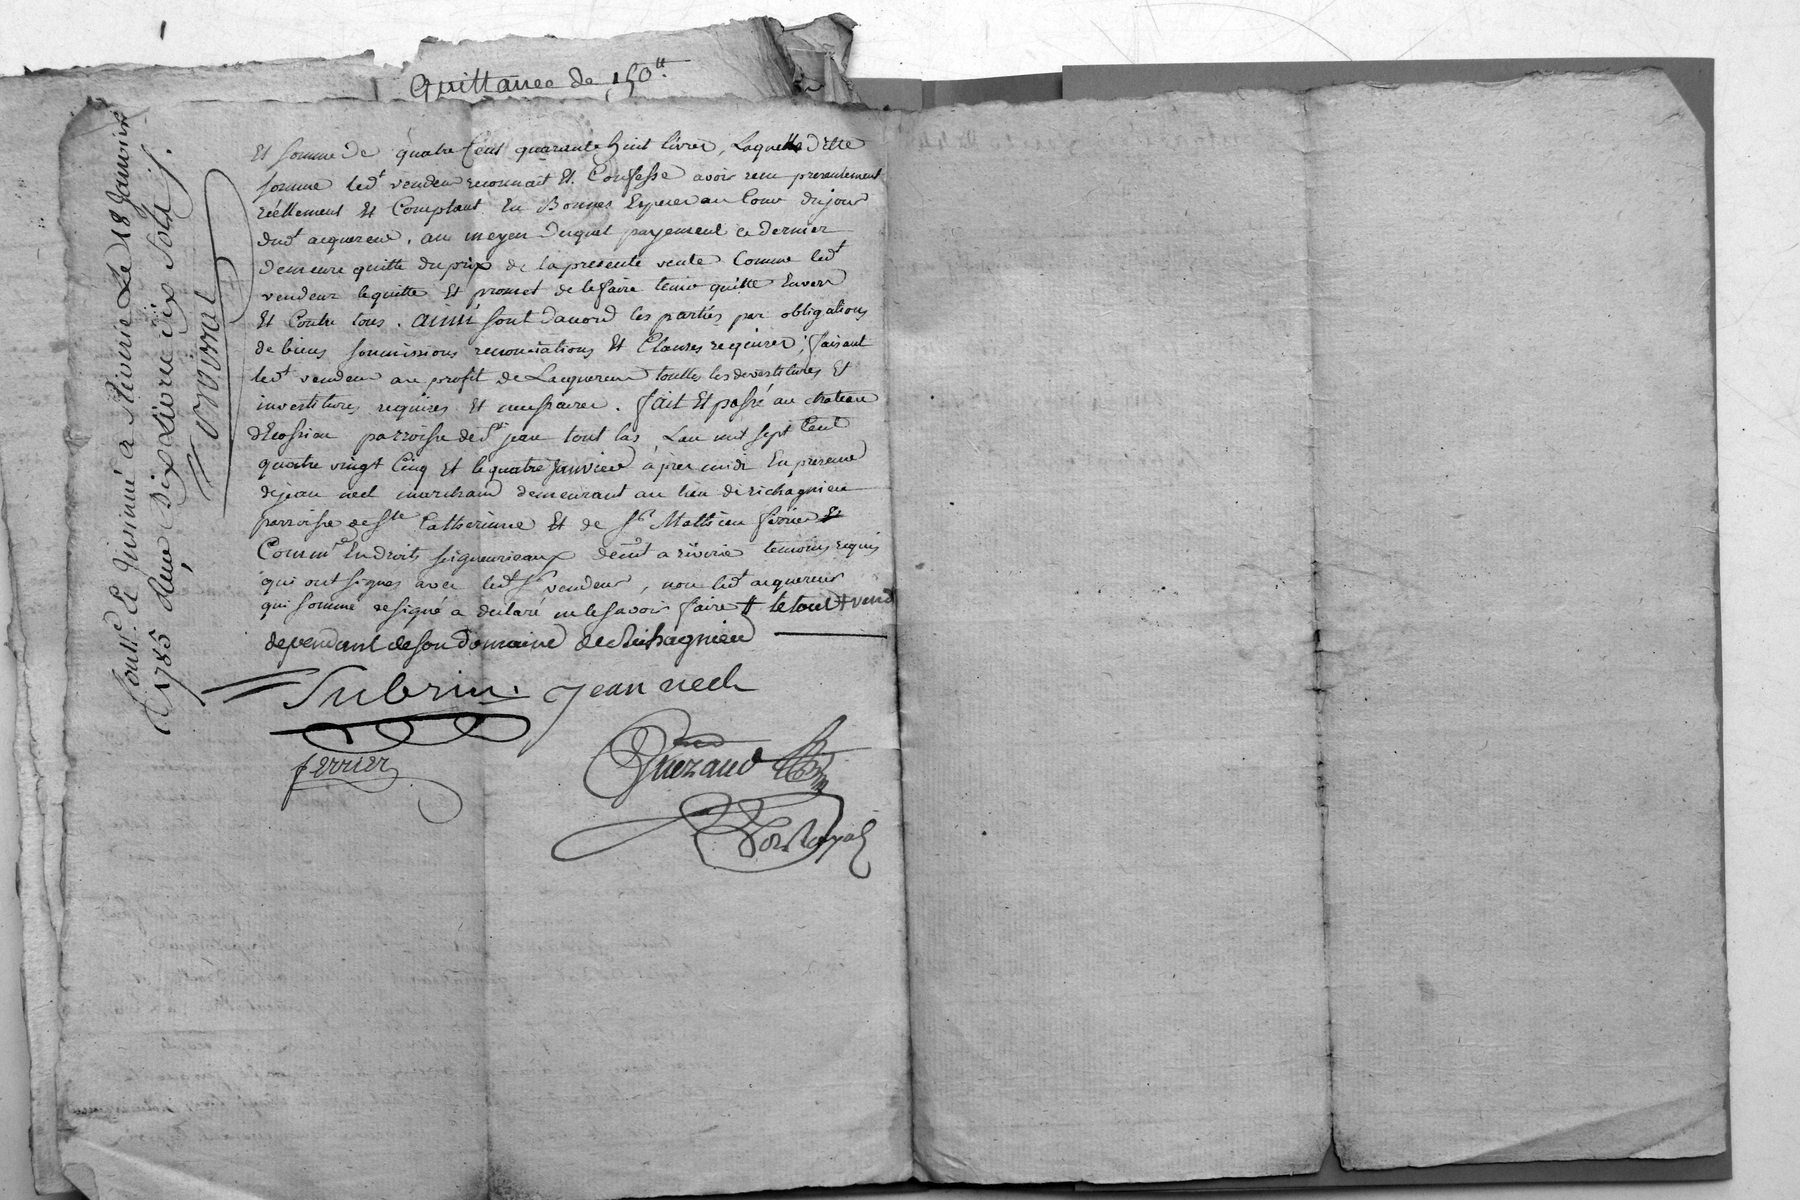 Quittance de 150tt
Et somme de quatre Cent quarante huit livres, Laquelle dette
somme led.t vendeur reconnait Et Confesse avoir recu presentement
reellement Et Comptant En Bonnes Especes au Cour du jour
dud.t acquereur, au moyen duquel payement ce dernier
demeure quitte du prix de la presente vente Comme led.t
vendeur le quitte Et promet de le faire tenir quitte Envers
Et Contre tous. ainsi sont d'acord les parties par obligations
de biens soumissions renonciations Et Clauses requises, faisant
led.t vendeur au profit de Lacquereur touttes les devestitures Et
investitures requises Et necessaires. fait Et passé au chateau
paroisse de St jean tout las, Lan mil sept Cent
quatre vingt Cinq Et le quatre Janvier après midi En presence
de jean nect marchand demeurant au lieu de richagnieu
parroisse de Ste Catherinne Et de Sr Mathieu ferrier Et
Comm.re En droits seigneuriaux dem.t a riverie temoins requis
qui ont signés avec led.t Sr vendeur, non led.t acquereur
qui sommé de signé a declaré ne le savoir faire # le tout # vend
dependant de son domaine de Richagnieu
Subrin. Jean nect
ferrier
Guezaud
Contr.lé Et Insinué a Riverie Le 18 Janvier
1785 Reçu Dix Livres dix Sols